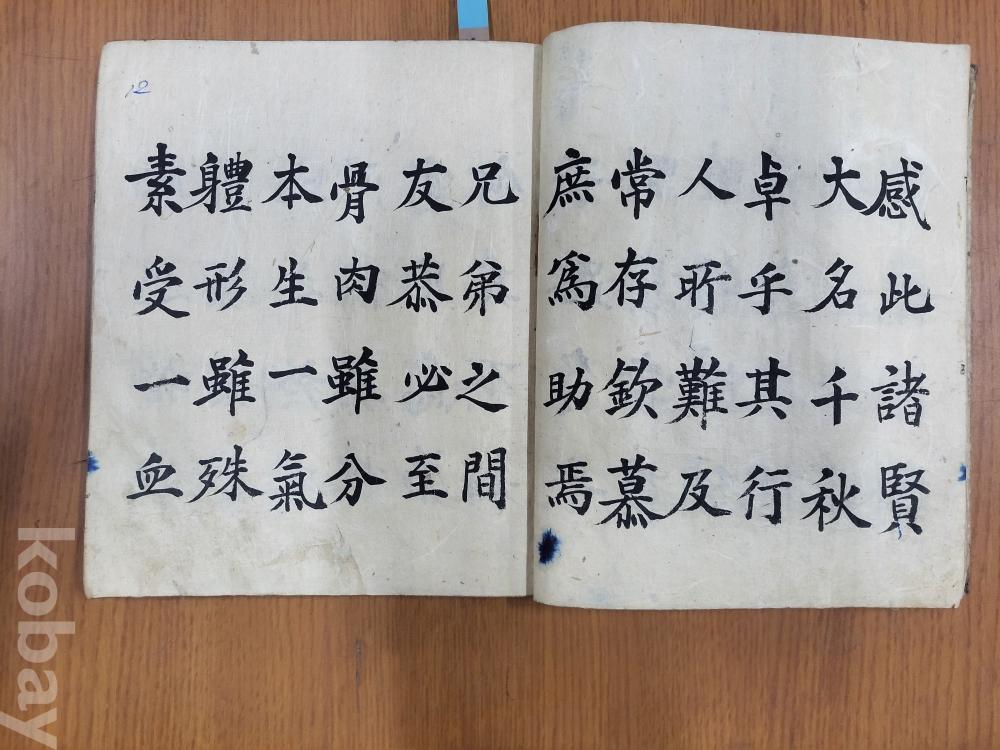 感此諸賢
大名千秋
卓乎其行
人所難及
常存欽慕
庶爲助焉
兄弟之間
友恭必至
骨肉雖分
本生一氣
軆形雖殊
素受一血
12
kobay